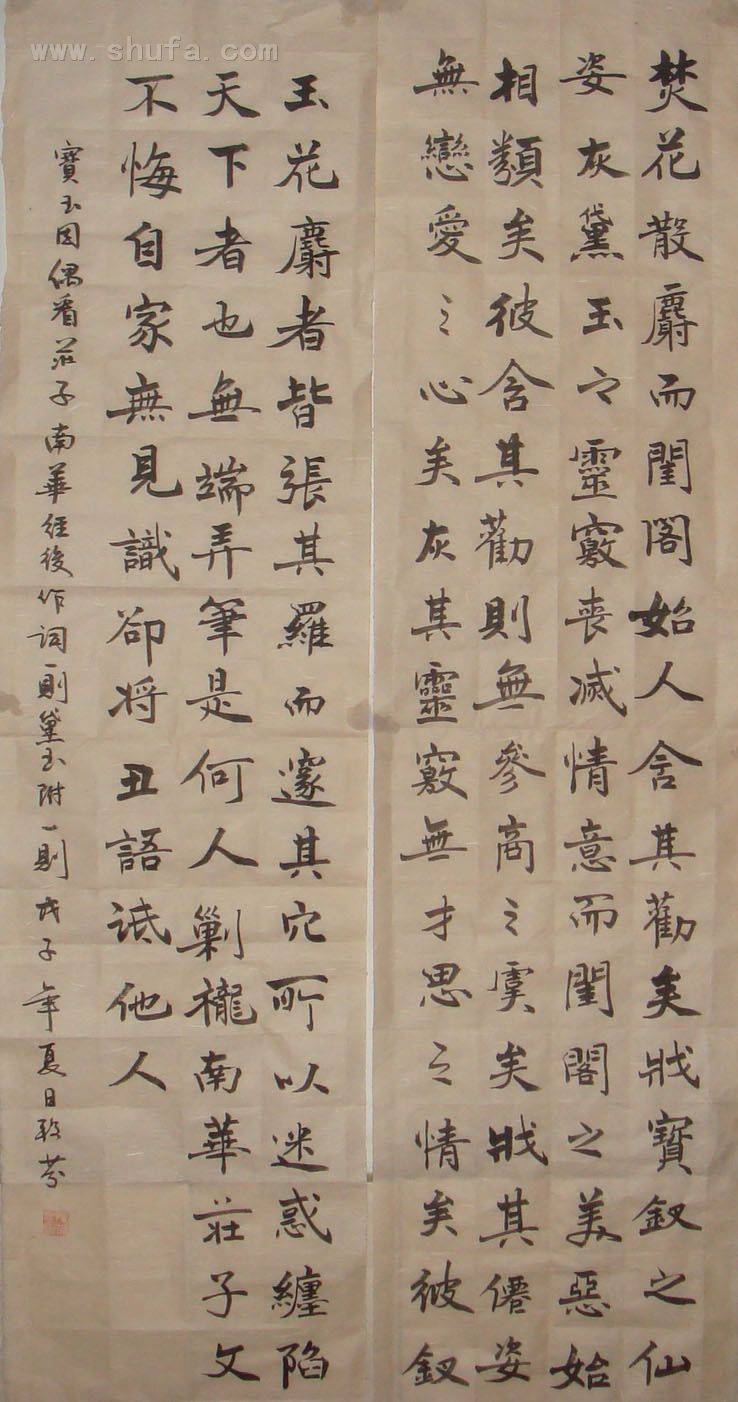 焚花散麝而閨閣始人含其勸矣戕寶釵之仙
姿灰黛玉之靈竅喪滅情意而閨閣之美惡始
相類矣彼含其勸則無參商之虞矣戕其僊姿
無戀愛之心矣灰其靈竅無才思之情矣彼釵
玉花麝者皆張其羅而邃其穴所以迷惑纏陷
天下者也無端弄筆是何人剿襱南華莊子文
不悔自家無見識卻将丑語詆他人
寶玉因偶看莊子南華经後作词一則黛玉附一則戊子年夏日芬
www.shufa.com